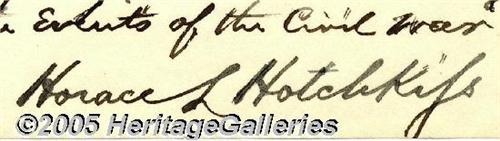 Events of the Civil War"
Horace L Hotchkiss
©2005 HeritageGalleries